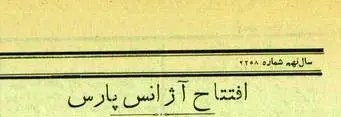 سال نهم شماره ۲۲۵۸
افتتاح آژانس پارس